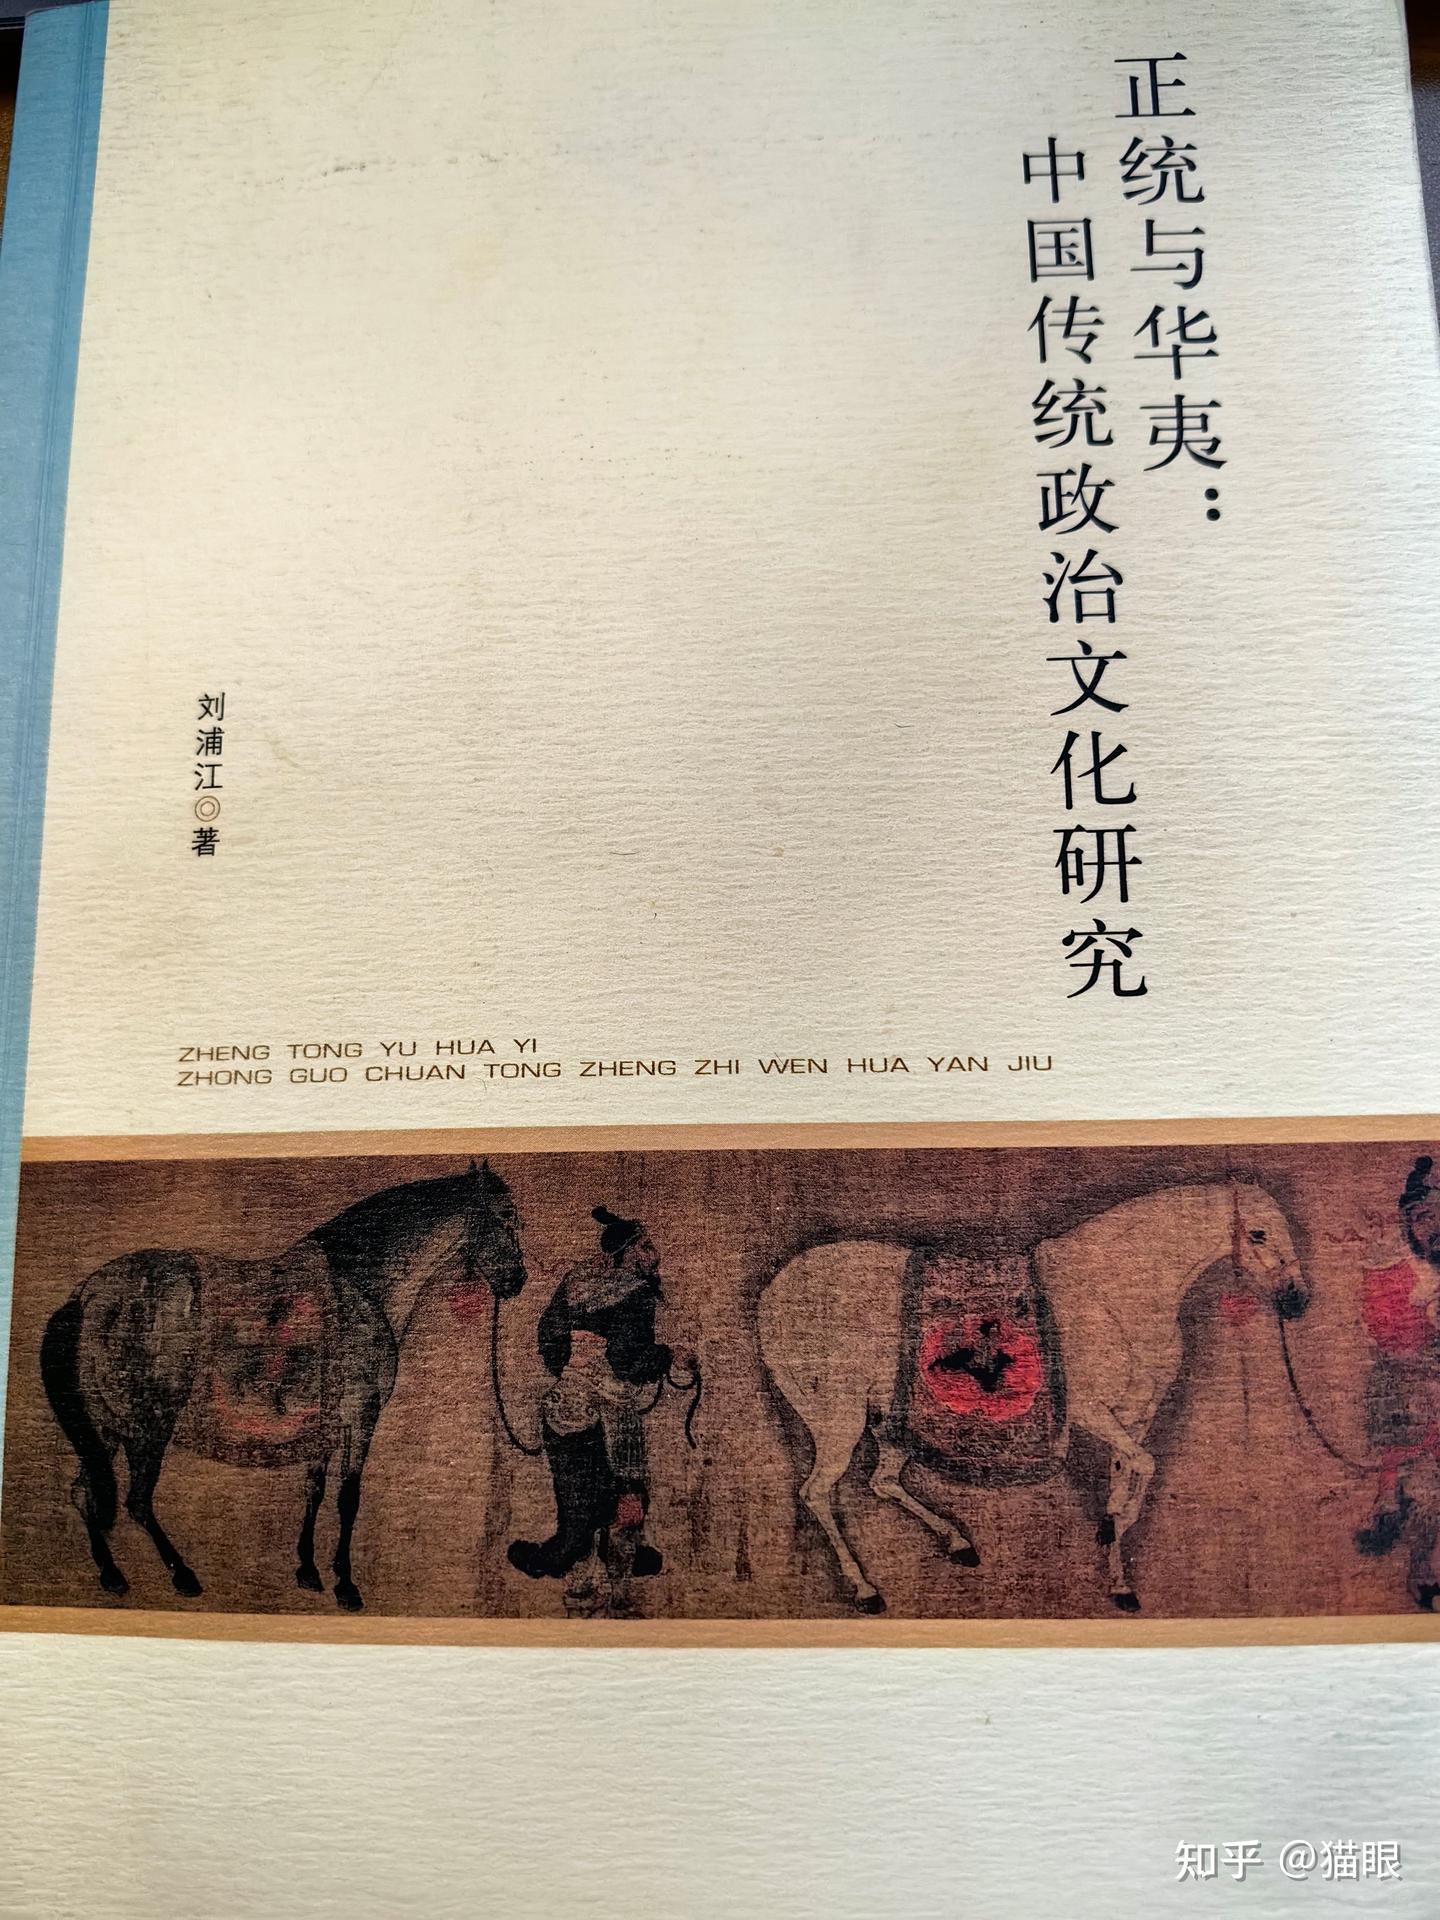 正统与华夷：
中国传统政治文化研究
刘浦江◎著
ZHENG TONG YU HUA YI
ZHONG GUO CHUAN TONG ZHENG ZHI WEN HUA YAN JIU
知乎 @猫眼